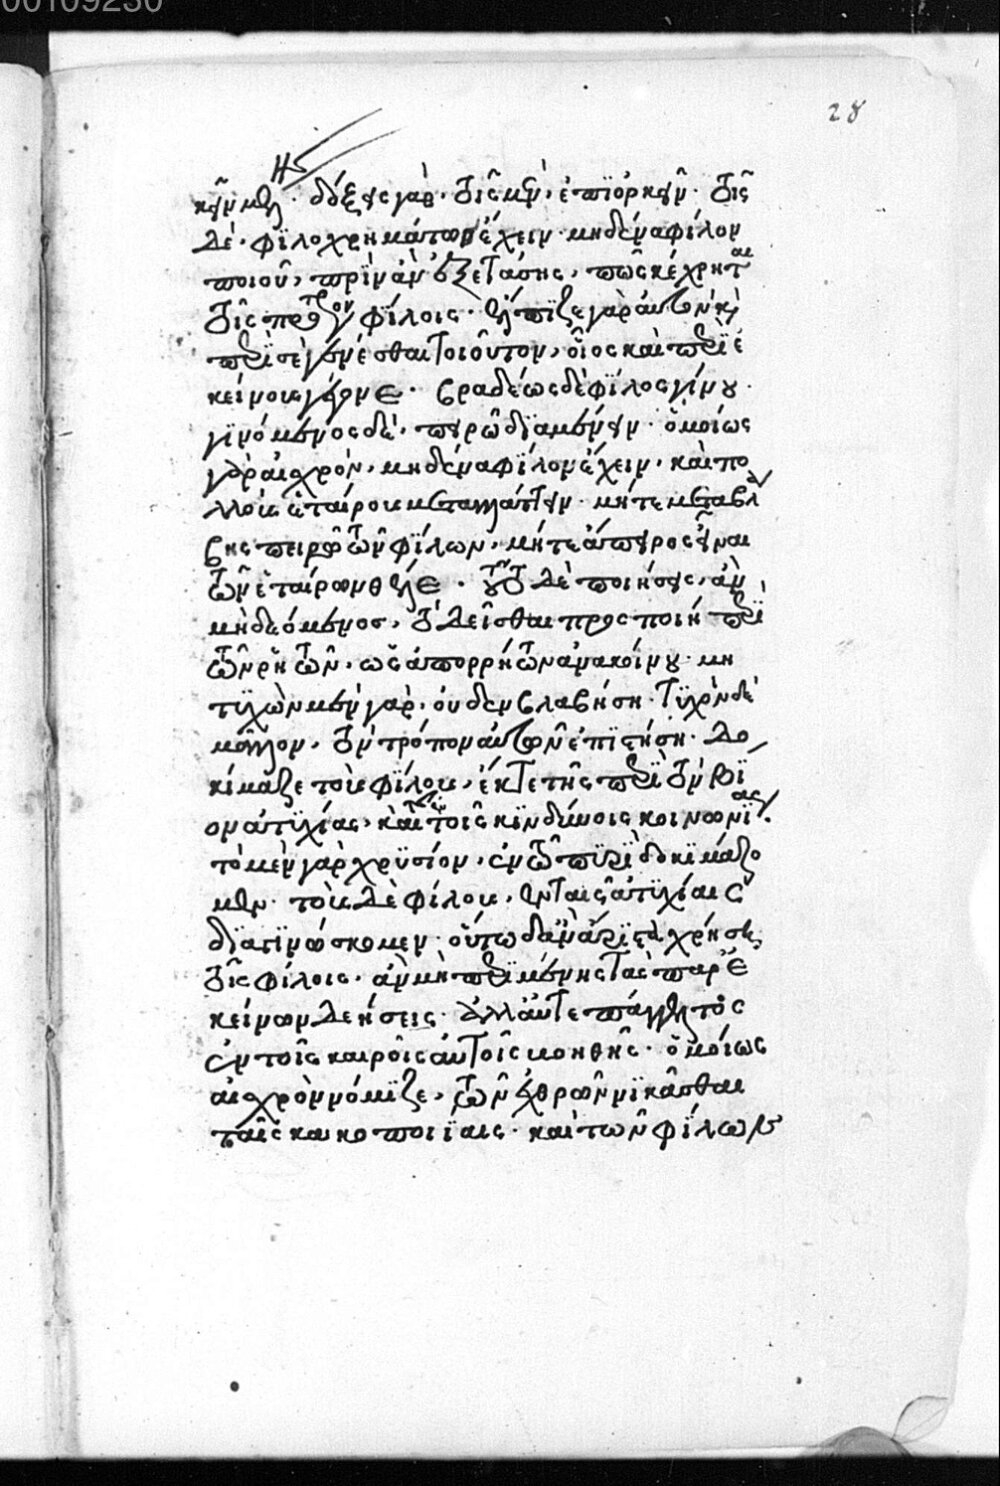 00109230
28
κεῖν μέλλῃς· δόξεις γὰρ· τοῖς μὲν· ἐπϊορκεῖν· τοῖς
δὲ· φϊλοχρημάτως ἔχειν· μηδένα φίλον
ποιοῦ, πρϊν ἂν ἐξετάσης, πῶς κέχρηται
τοῖς πρότερον φίλοις· ἔλπϊζε γὰρ αὐτὸν καὶ
περὶ σὲ γενέσθαι τοιοῦτον, οἷος καὶ περὶ ἐ
κείνους γέγονε· βραδέως δὲ φίλος γίνου·
γϊνόμενος δὲ, πειρῶ δϊαμένειν· ὁμοίως
γὰρ αἰσχρὸν, μηδένα φϊλον ἔχειν, καὶ πο
λλοὺς ἑταίρους μεταλλάττειν· μήτε μετὰ βλά
βης πειρῶ τῶν φίλων, μήτε ἄπειρος εἶναι
τῶν ἑταίρων θέλε· τοῦτο δὲ ποιήσεις, ἂν
μὴ δεόμενος, τὸ δεῖσθαι προσποιῆ· περὶ
τῶν ῥητῶν, ὡς ἀπορρήτων ἀνακοίνου· μὴ
τϋχὼν μὲν γὰρ, οὐδεν βλαβήση· τϋχὼν δὲ
μᾶλλον, τὸν τρόπον αὐτῶν ἐπϊστήση· δο
κίμαζε τοὺς φϊλους, ἔκ τε τῆς περὶ τὸν βϊ
ον ἀτϋχίας, καὶ τῆς ἐν τοῖς κϊνδύνοις κοινωνϊας·
τὸ μὲν γὰρ χρϋσίον, ἐν τῶ πϋρὶ δοκϊμάζο
μεν· τοὺς δὲ φίλους, ἐν ταῖς ἀτϋχίαις
δϊαγϊνώσκομεν· οὕτω δ' ἂν ἄρϊστα χρήσῃ
τοῖς φίλοις· ἂν μὴ περϊμένης τὰς παρ' ἐ
κείνων δεήσεις· ἀλλ' αὐτεπάγγελτος
ἐν τοῖς καιροῖς αὐτοῖς βοηθῆς· ὁμοίως
αἰσχρὸν νόμϊζε, τῶν ἐχθρῶν νϊκᾶσθαι
ταῖς κακοποιϊαις· καὶ τῶν φϊλων